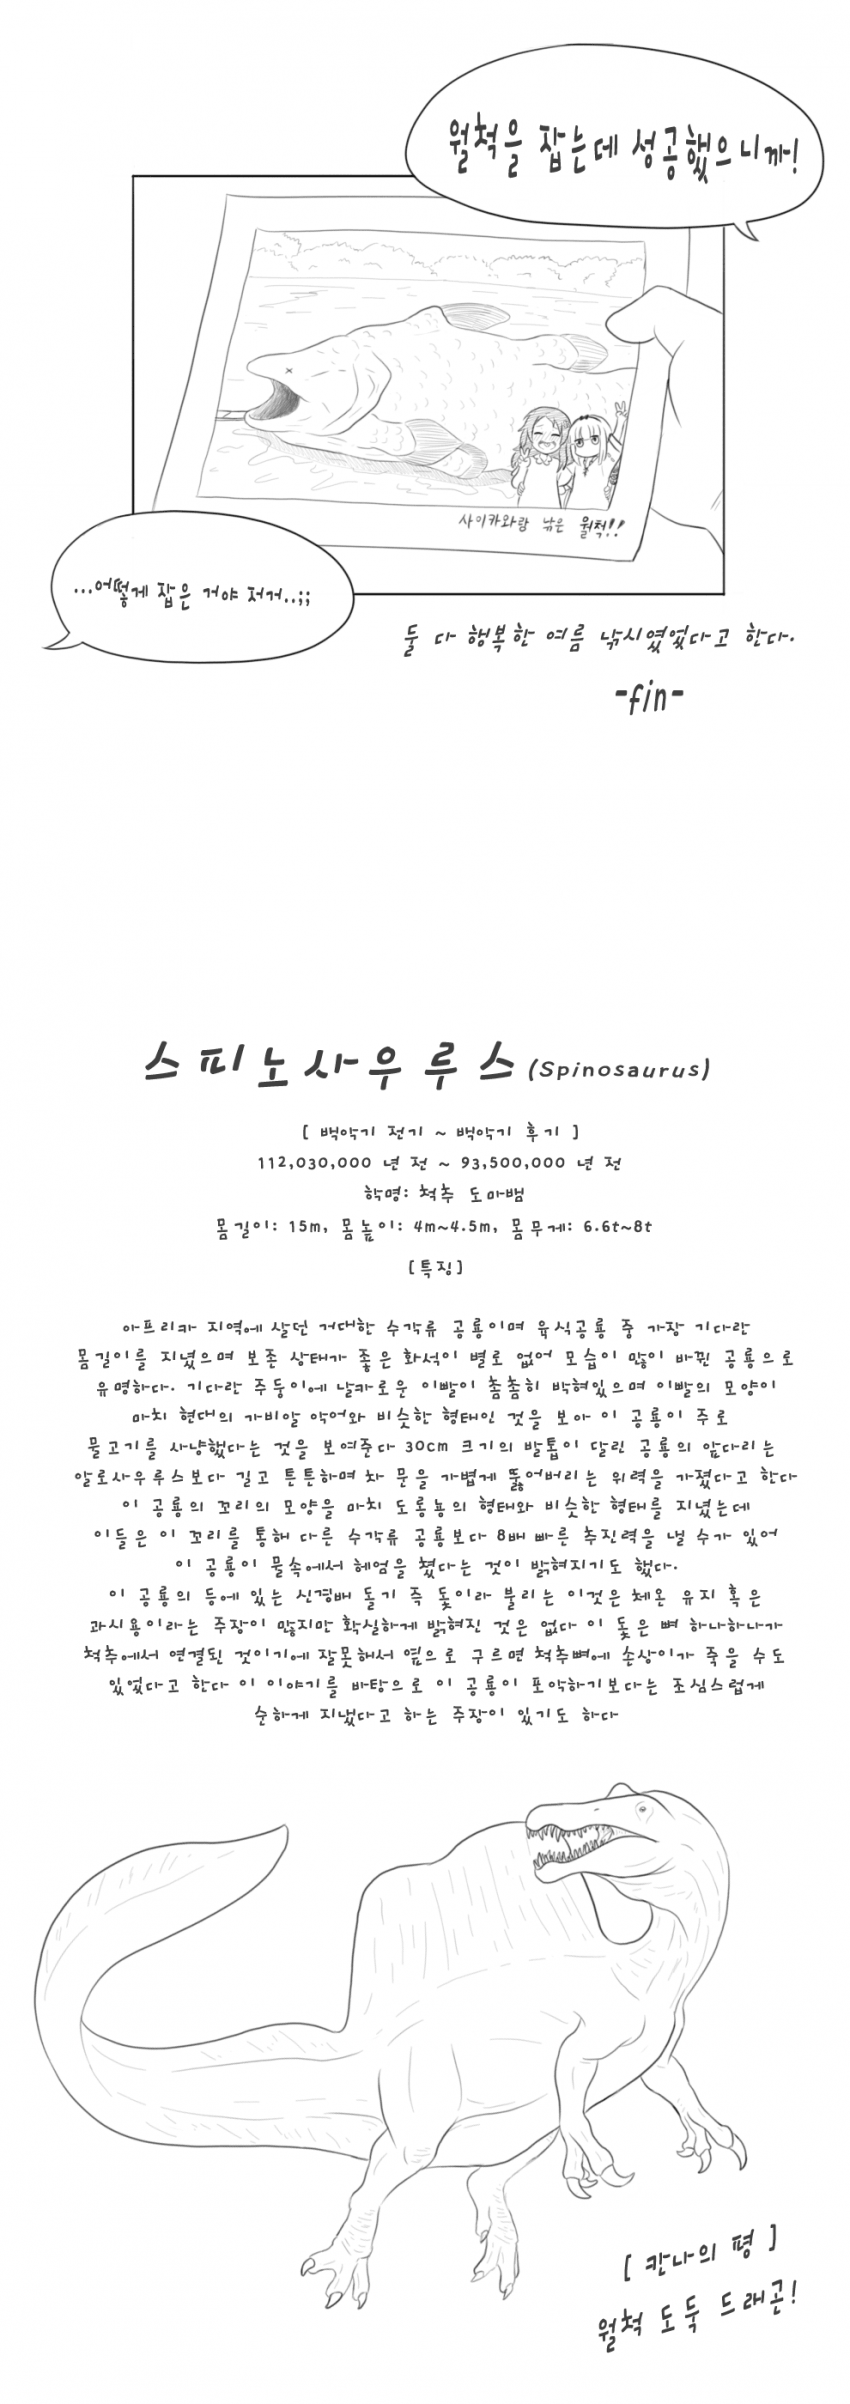 월척을 잡는데 성공했으니까!
사이카와랑 낚은 월척!!
...어떻게 잡은 거야 저거..;;
둘 다 행복한 여름 낚시였었다고 한다.
-fin-
스피노사우루스 (Spinosaurus)
[ 백악기 전기 ~ 백악기 후기 ]
112,030,000 년 전 ~ 93,500,000 년 전
학명: 척추 도마뱀
몸길이: 15m, 몸높이: 4m~4.5m, 몸무게: 6.6t~8t
[특징]
아프리카 지역에 살던 거대한 수각류 공룡이며 육식공룡 중 가장 기다란
몸길이를 지녔으며 보존 상태가 좋은 화석이 별로 없어 모습이 많이 바뀐 공룡으로
유명하다. 기다란 주둥이에 날카로운 이빨이 촘촘히 박혀있으며 이빨의 모양이
마치 현대의 가비알 악어와 비슷한 형태인 것을 보아 이 공룡이 주로
물고기를 사냥했다는 것을 보여준다 30cm 크기의 발톱이 달린 공룡의 앞다리는
알로사우루스보다 길고 튼튼하며 차 문을 가볍게 뚫어버리는 위력을 가졌다고 한다
이 공룡의 꼬리의 모양을 마치 도롱뇽의 형태와 비슷한 형태를 지녔는데
이들은 이 꼬리를 통해 다른 수각류 공룡보다 8배 빠른 추진력을 낼 수가 있어
이 공룡이 물속에서 헤엄을 쳤다는 것이 밝혀지기도 했다.
이 공룡의 등에 있는 신경배 돌기 즉 돛이라 불리는 이것은 체온 유지 혹은
과시용이라는 주장이 많지만 확실하게 밝혀진 것은 없다 이 돛은 뼈 하나하나가
척추에서 연결된 것이기에 잘못해서 옆으로 구르면 척추뼈에 손상이가 죽을 수도
있었다고 한다 이 이야기를 바탕으로 이 공룡이 포악하기보다는 조심스럽게
순하게 지냈다고 하는 주장이 있기도 하다
[ 칸나의 평 ]
월척 도둑 드래곤!